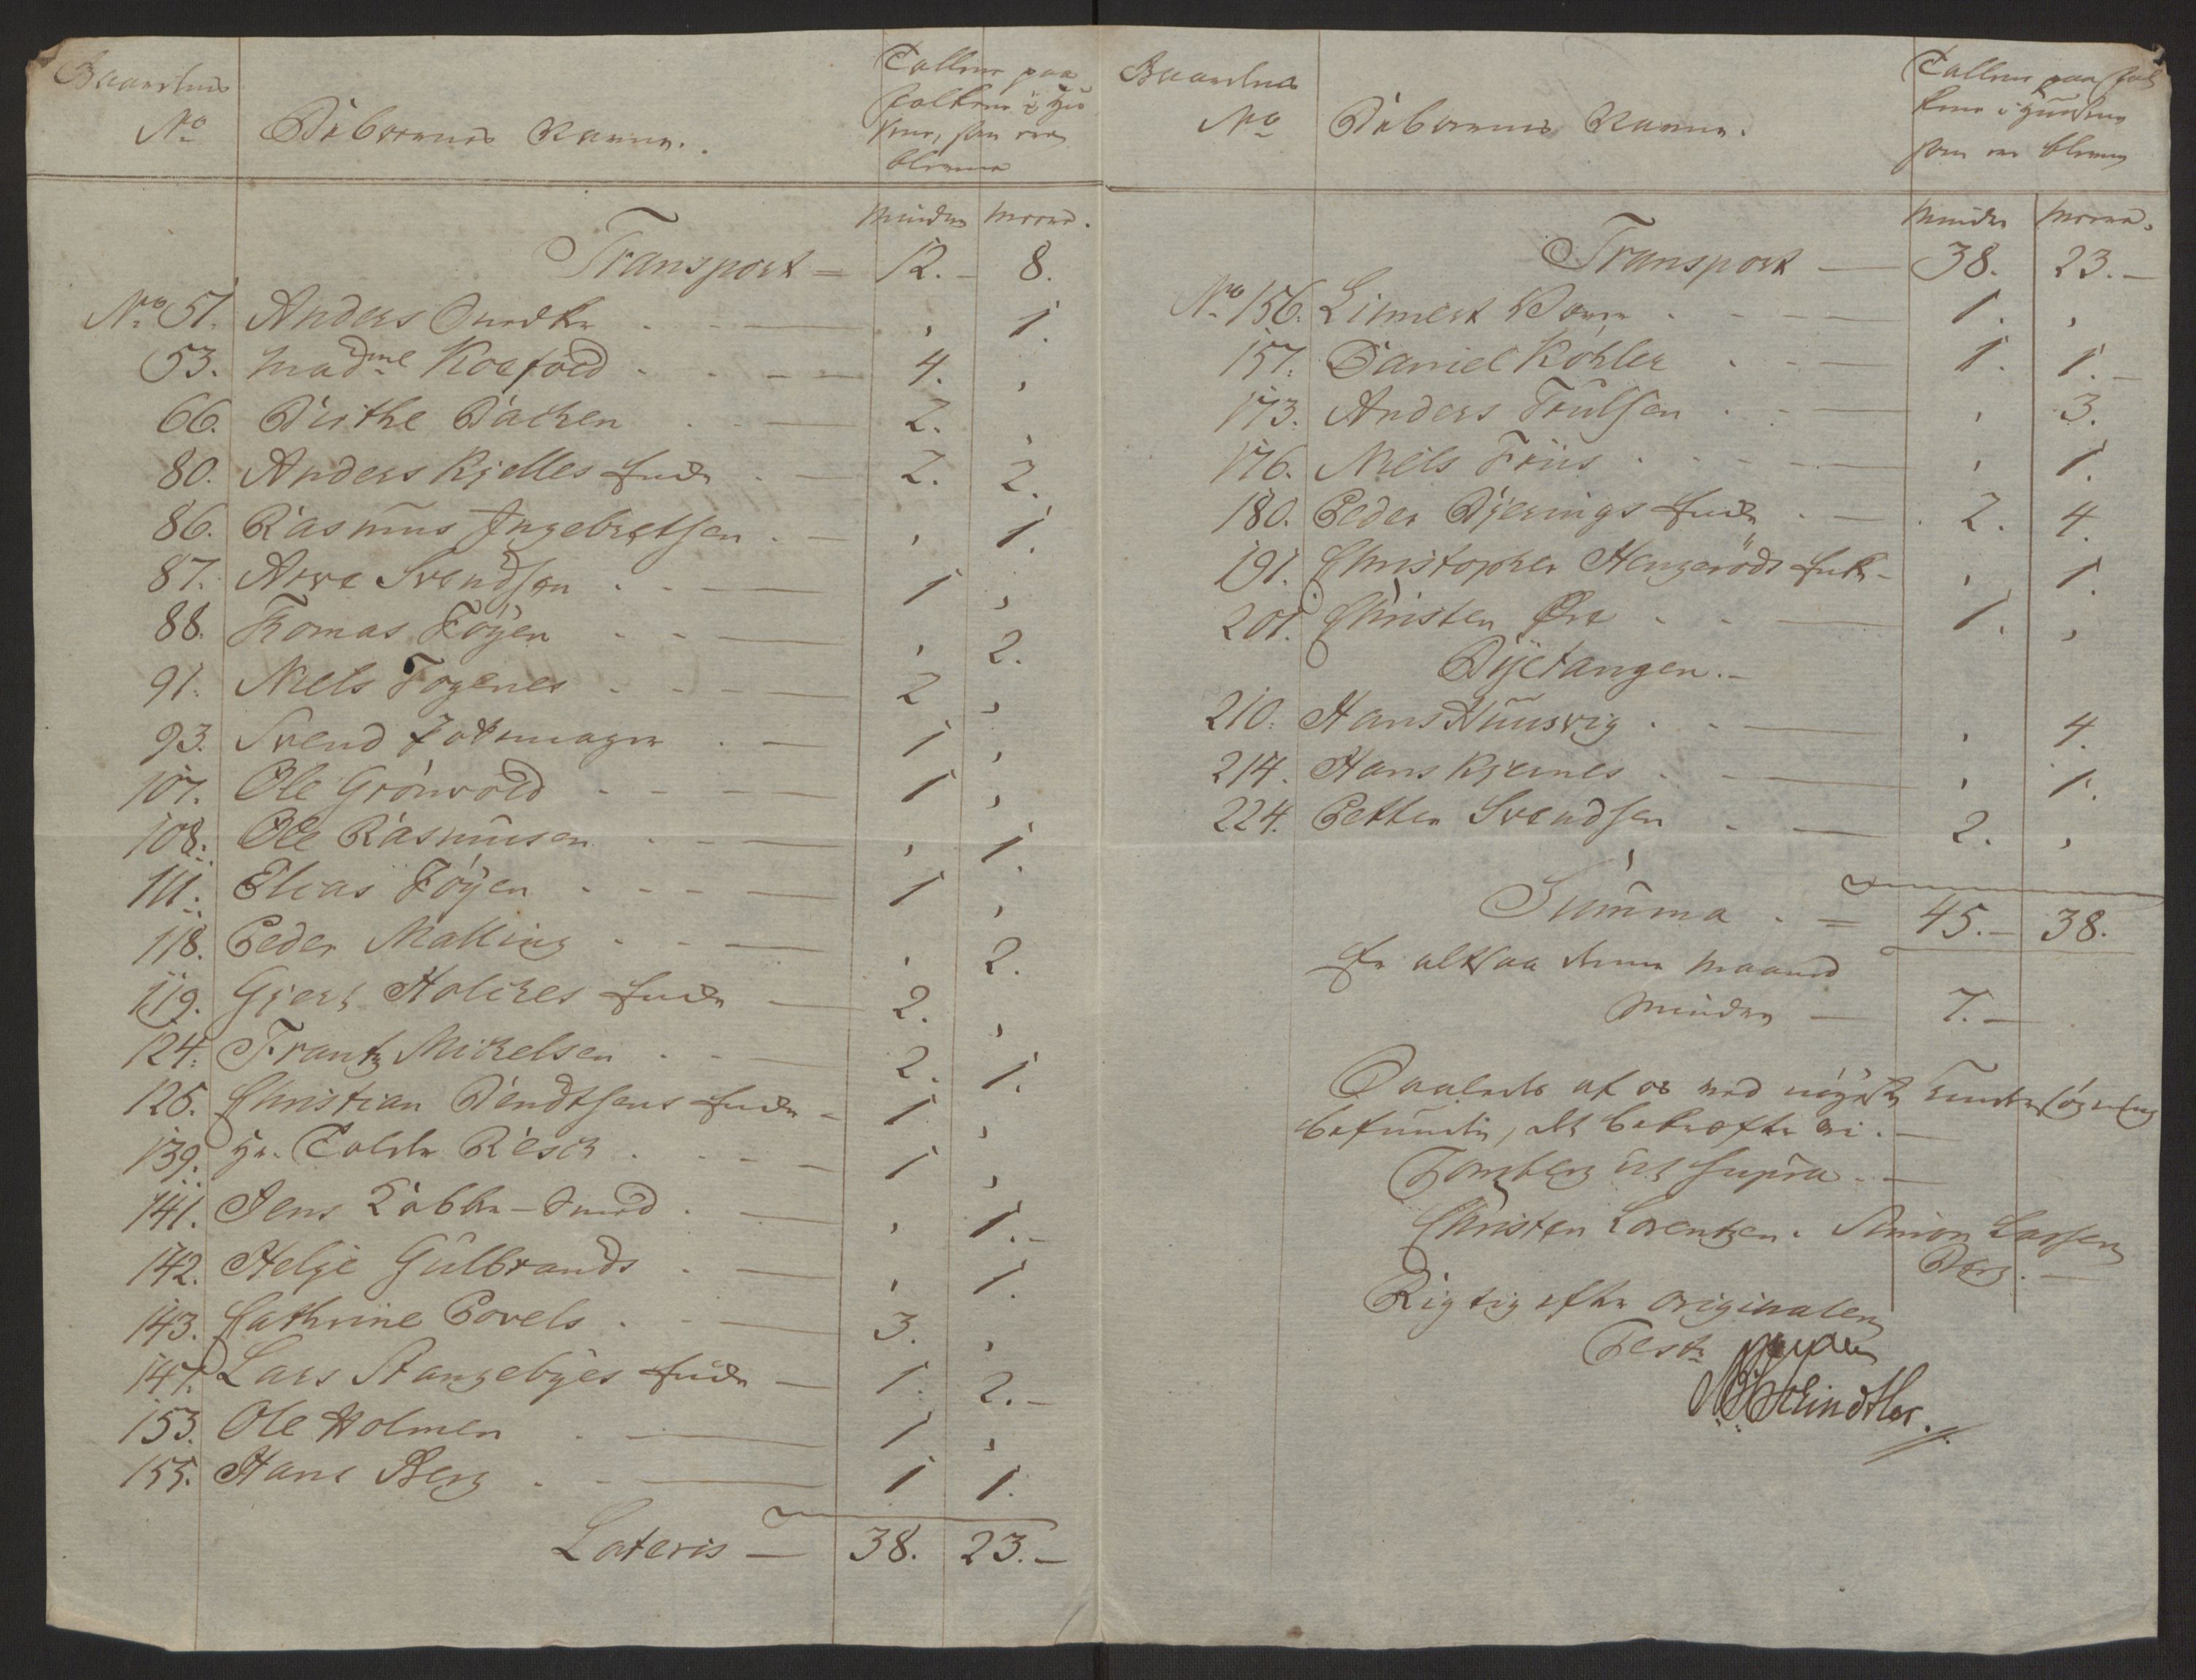 Gaardenes
No
Beboernes Navne.
Tallene paa
Folkene i Hu
sene, som ere
blevne
minder meere.
Transport = 12. - 8.
No 51. Anders Snedker , 1.
53. Madme Koefoed 4. ,
66. Birthe Bachen 2. ,
80. Anders Kjelles Enke 2. 2.
86. Rasmus Ingebretsen , 1.
87. Arve Svendsen 1 ,
88. Tomas Föyen , 2.
91. Niels Togenes 2 ,
93. Svend 1 ,
107. Ole Grönvold 1 ,
108. Ole Rasmusen , 1.
111. Elias Föyen 1 ,
118. Peder Malling , 2.
119. Gjert Holches Enke 2. ,
124. Frantz Michelsen 2. 1.
125. Christian Bendtsens Enke 1 ,
139. Hr. Tolder Resch 1 ,
141. Jens Kobber-Smed , 1.-
142. Helge Gulbrands , 1.
143. Cathrine Povels 3. ,
147. Lars Stangebyes Enke 1. 2.-
153. Ole Holmen 1 ,
155. Hans Berg 1 1.
Lateris - 38. 23.-
Gaardenes
No
Beboernes Navne.
Tallene paa Fol
kene i Husene
som ere blevne
minder meere.
Transport 38. 23.-
No 156. Linnert 1. ,
157. Daniel Köhler 1. 1.-
173. Anders Trulsen , 3.
176. Niels Friis , 1.
180. Peder Bjerings Enke 2. 4.
191. Christopher Hengeröds Enke , 1.
201. Christen Öre 1. ,
Byetangen.-
210. Hans Huusvig , 4.
214. Hans Kjernes , 1.
224. Petter Svendsen 2. ,
Summa = 45.- 38.
Er altsaa denne Maaned
minder - 7.-
Saaledes af os ved nöyeste Undersögning
befunden, det bekrefter vi.-
Tonsberg Ut supra.-
Christen Lorentzen. Simon Larsen
Berg.-
Rigtig efter Originalen
Test:
Schindtler.